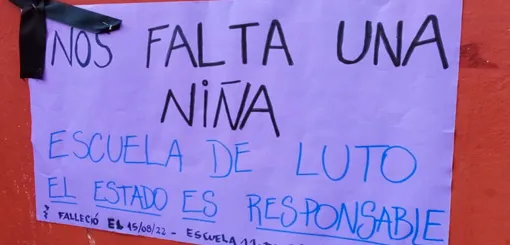 NOS FALTA UNA
NIÑA
ESCUELA DE LUTO
EL ESTADO ES RESPONSABLE
FALLECIÓ EL 15/08/22 - ESCUELA